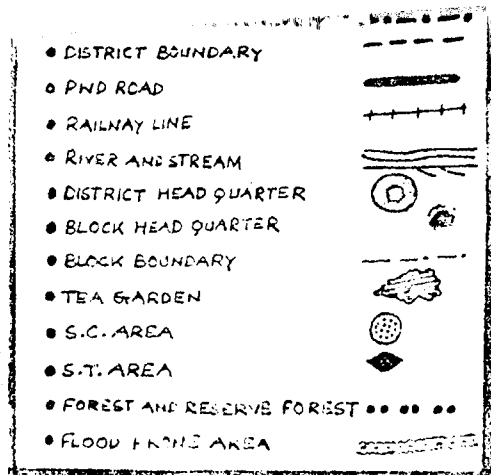 • DISTRICT BOUNDARY
• PWD ROAD
• RAILWAY LINE
• RIVER AND STREAM
• DISTRICT HEAD QUARTER
• BLOCK HEAD QUARTER
• BLOCK BOUNDARY
• TEA GARDEN
• S.C. AREA
• S.T. AREA
• FOREST AND RESERVE FOREST
• FLOOD PRONE AREA